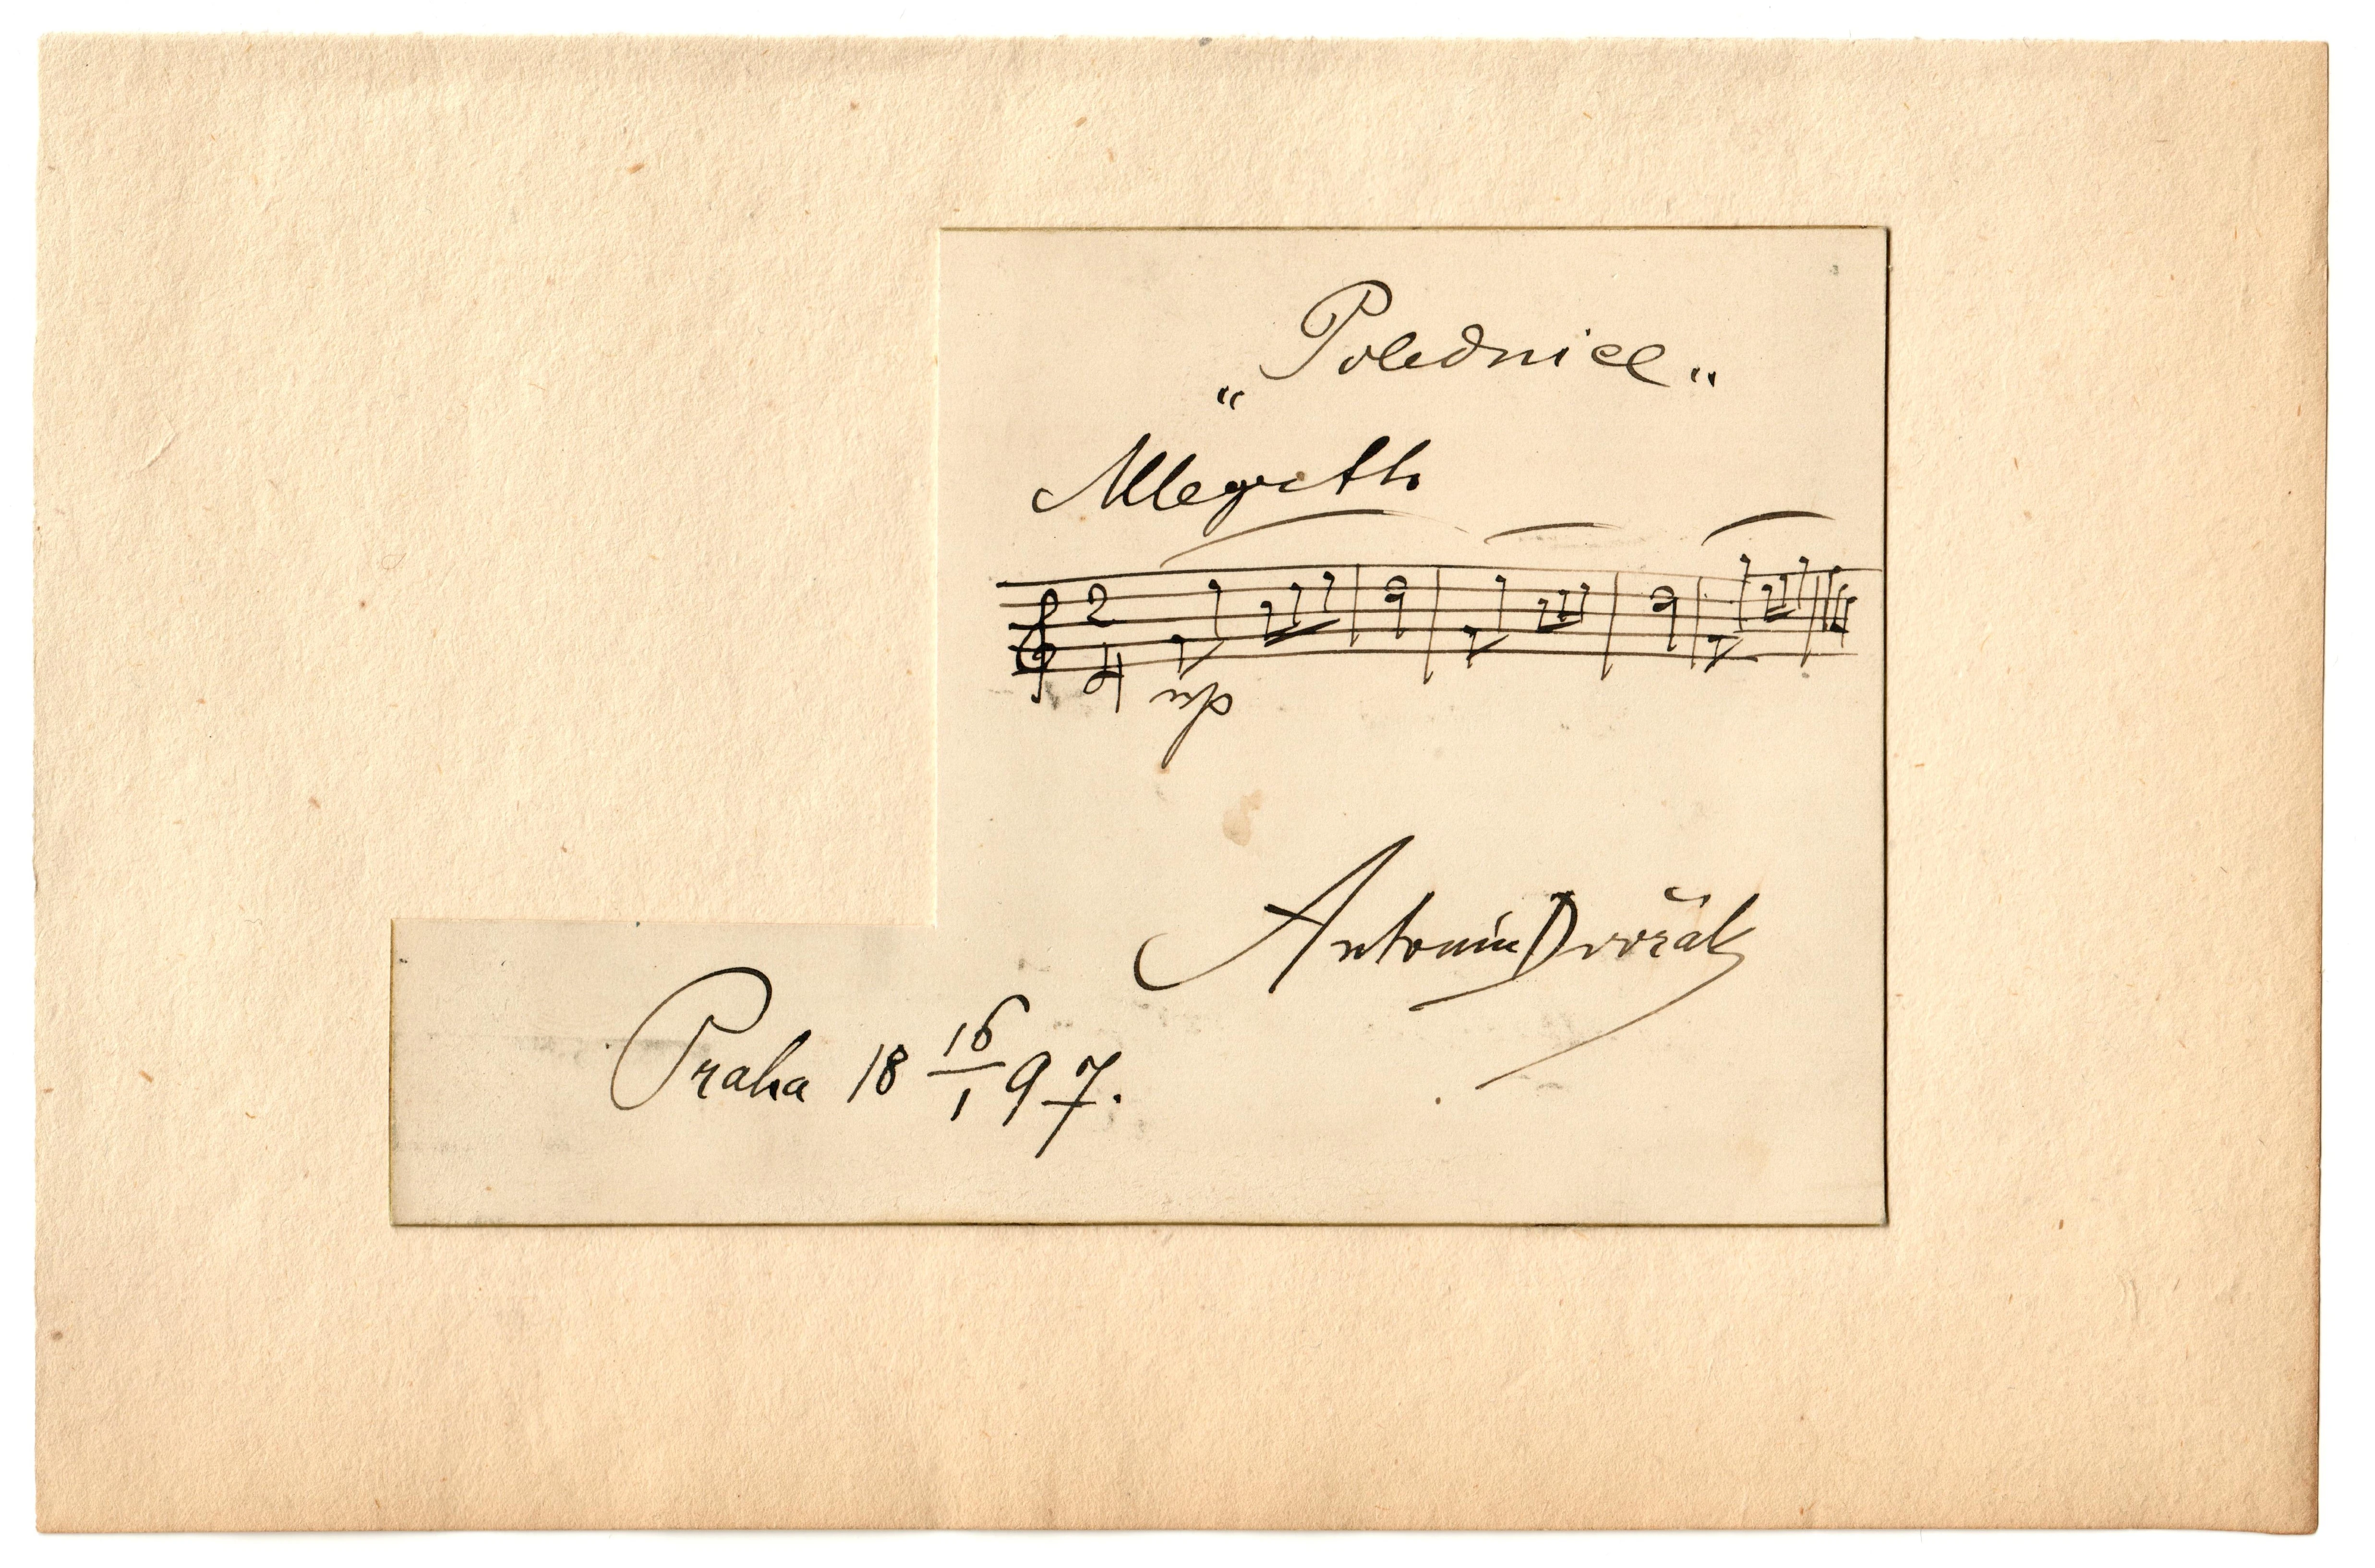 „Polednice„
Allegretto
2
4
mp
Antonín Dvořák
Praha 18 16/1 97.